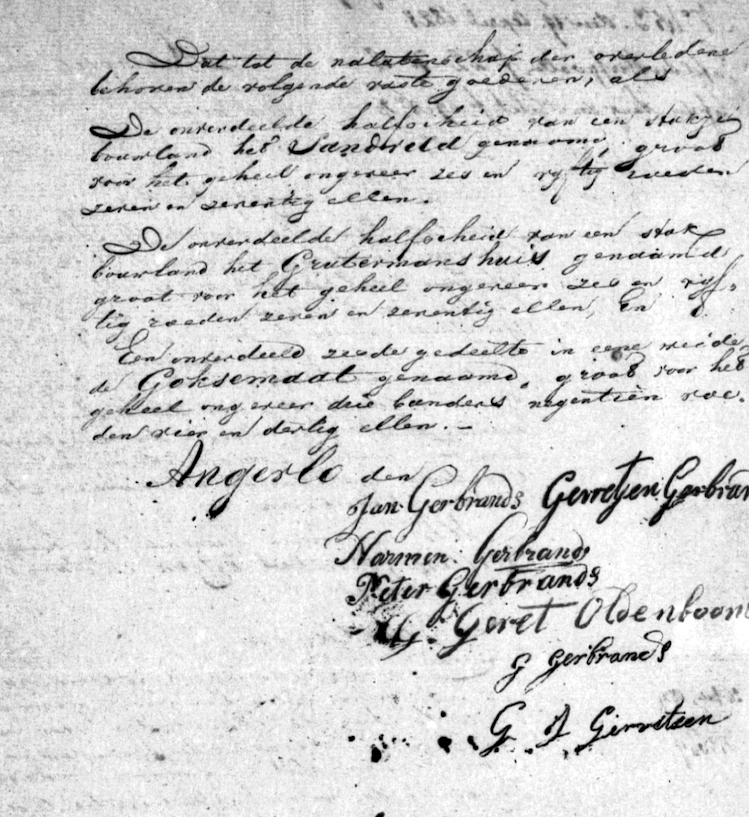 Dat tot de nalatenschap der overledene
behoren de volgende vaste goederen, als
De onverdeelde halfscheid van een stukje
bouwland het Sandveld genaamd, groot
voor het geheel ongeveer zes en vyftig roeden
zeven en zeventig ellen.
De onverdeelde halfscheid van een stuk
bouwland het Grutermanshuis genaamd
groot voor het geheel ongeveer zes en vyf-
tig roeden zeven en zeventig ellen, En
Een onverdeeld zesde gedeelte in eene weide
de Goksemaat genaamd, groot voor het
geheel ongeveer drie bunders negentien roe-
den vier en dertig ellen. -
Angerlo den
Jan Gerbrands Gerretjen Gerbran
Harmen Gerbrands
Peter Gerbrands
Geret Oldenboom
G Gerbrands
G J Gerretsen